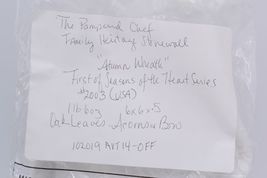 The Pampered Chef
Family Heritage Stoneware
"Autumn Wreath"
First of Seasons of the Heart Series
#2003 (USA)
1 lb 6oz 6x6x.5
Oak Leaves Acorns w Bow
102019 AVT 14-OFF